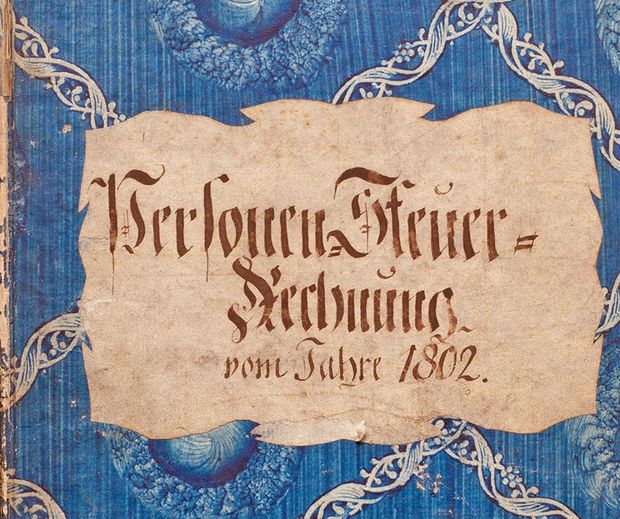 Personen=Steuer=
Rechnung
vom Jahre 1802.